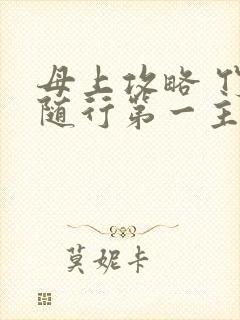 母上攻略 仅
随行第一主
莫妮卡